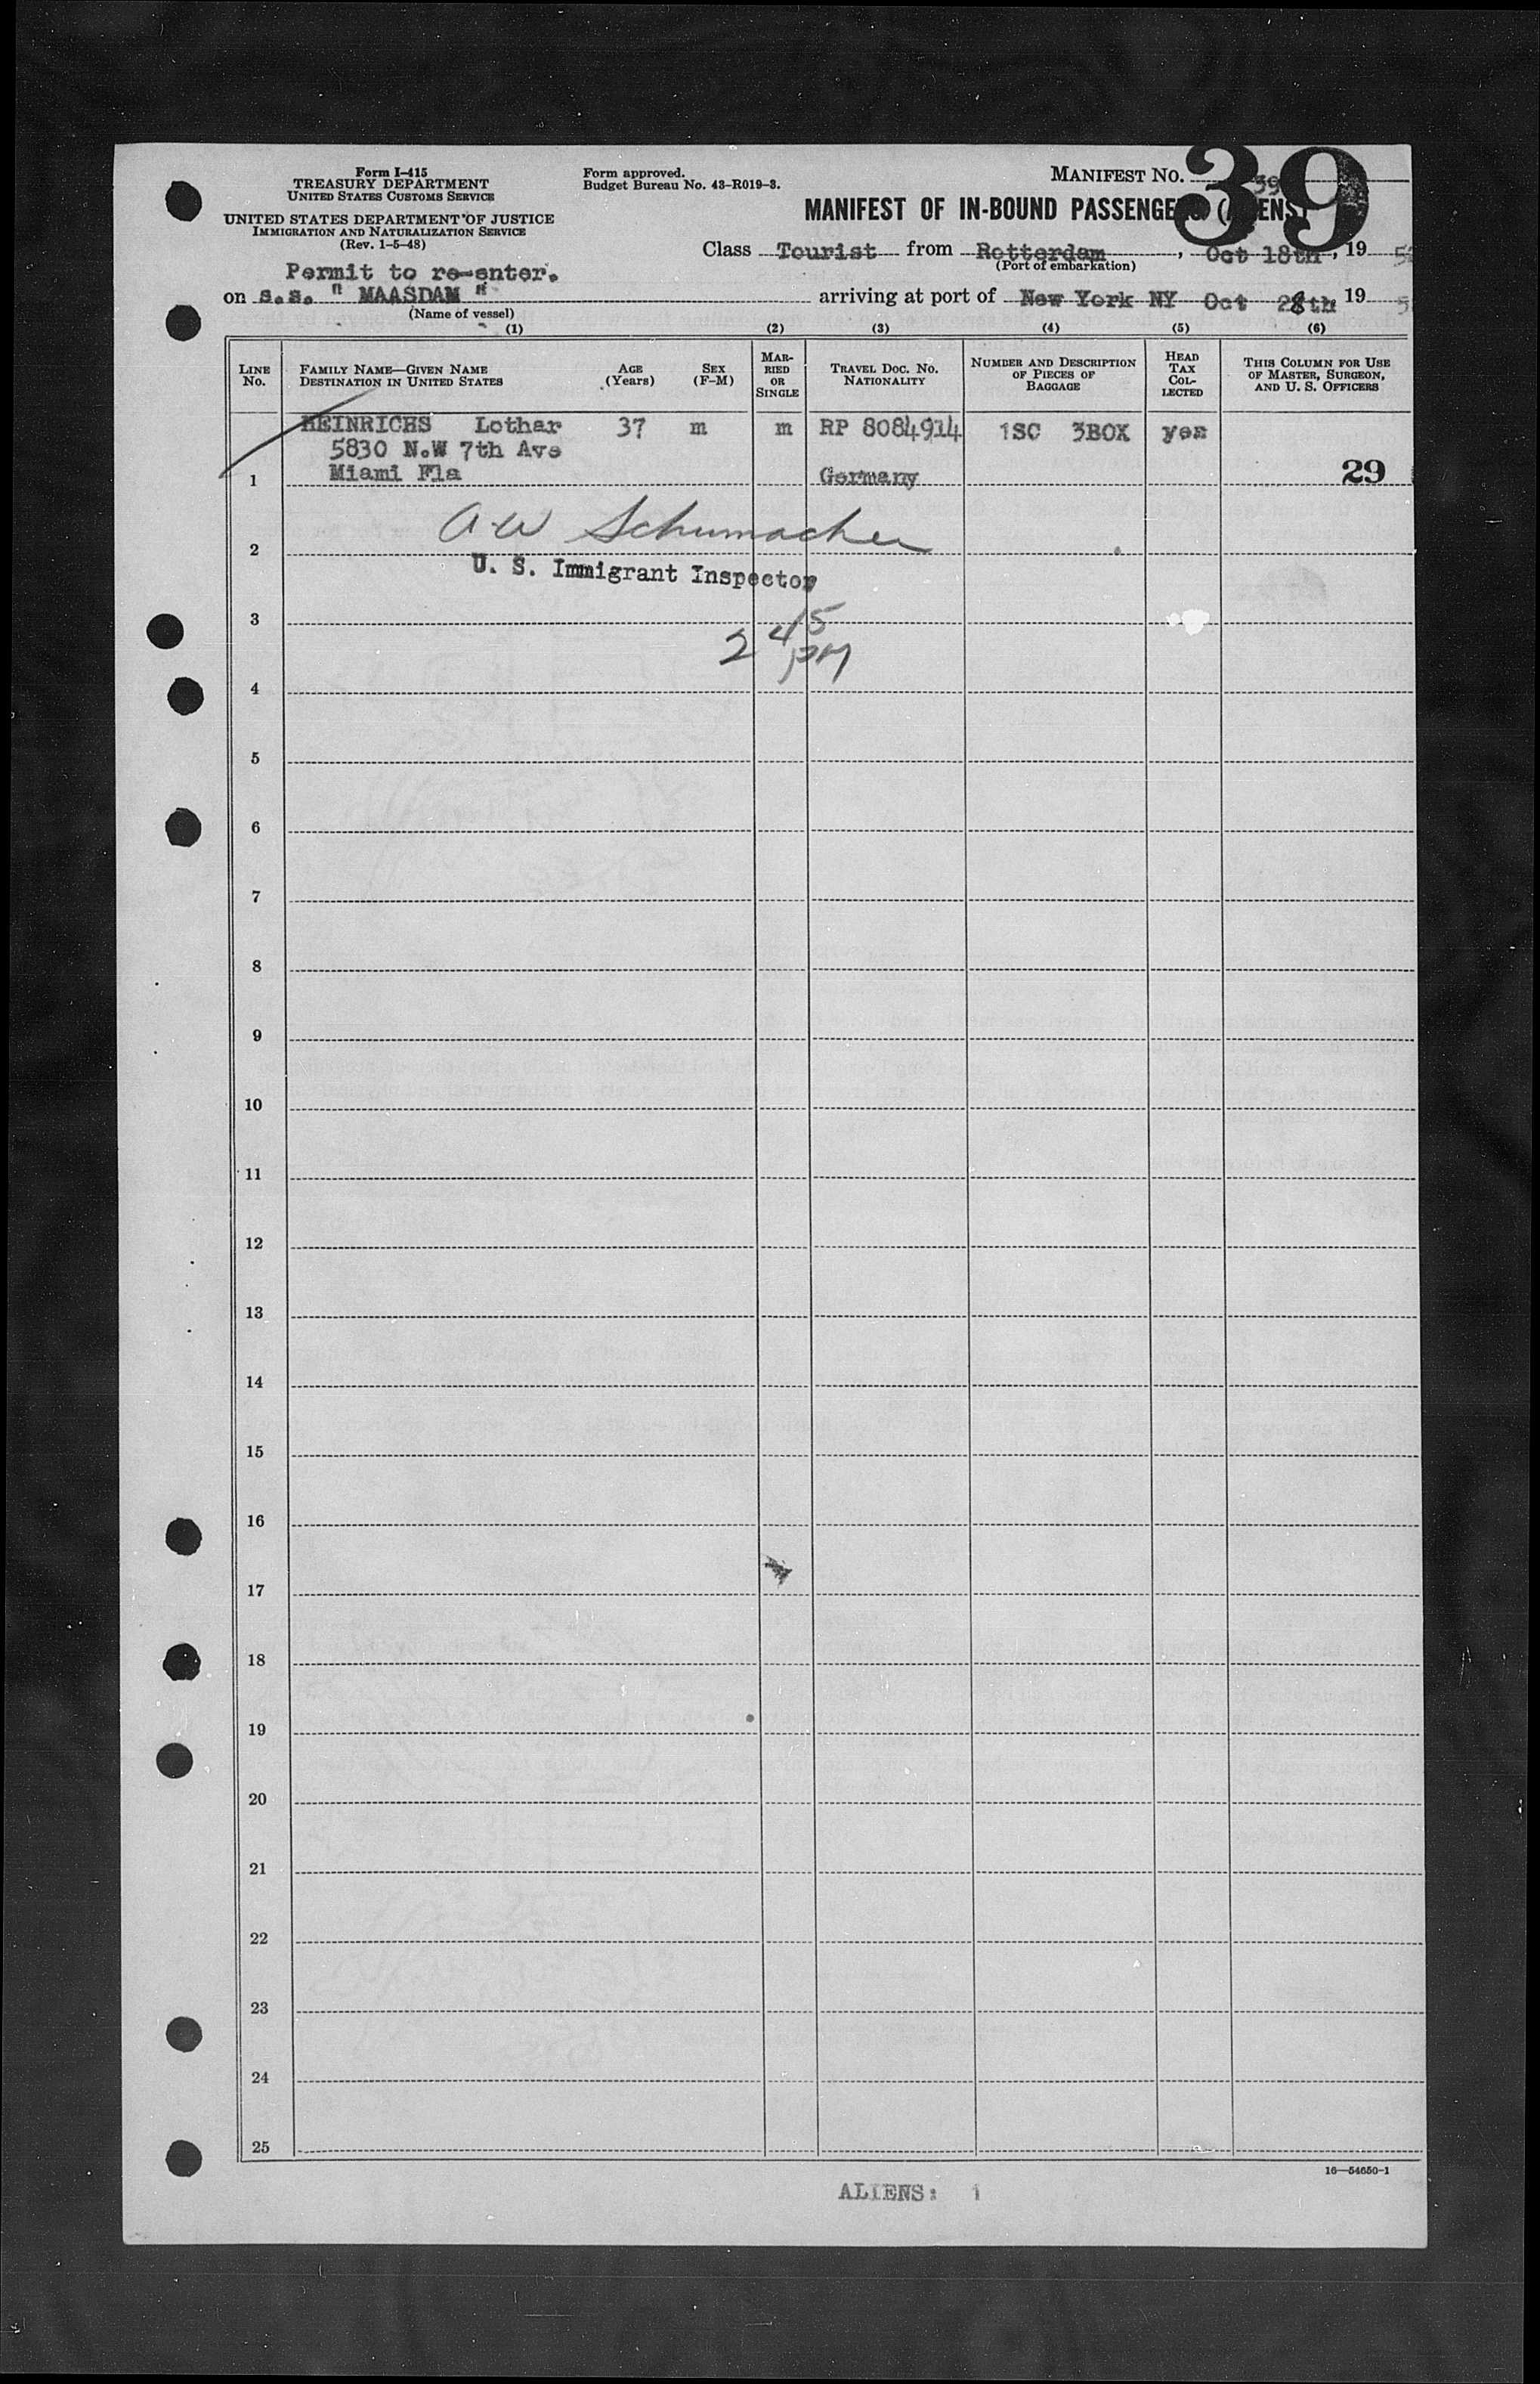 Form I-415
TREASURY DEPARTMENT
UNITED STATES CUSTOMS SERVICE
UNITED STATES DEPARTMENT OF JUSTICE
IMMIGRATION AND NATURALIZATION SERVICE
(Rev. 1-5-48)
Form approved.
Budget Bureau No. 43-R019-3.
MANIFEST No. 39
39
MANIFEST OF IN-BOUND PASSENGERS (ALIENS)
Class Tourist from Rotterdam, Oct 18th, 19
(Port of embarkation)
Permit to re-enter.
on s.s. " MAASDAM " arriving at port of New York NY Oct 28th 19
(Name of vessel)
(1) (2) (3) (4) (5) (6)
LINE No.
FAMILY NAME—GIVEN NAME
DESTINATION IN UNITED STATES
AGE (Years)
SEX (F-M)
MARRIED OR SINGLE
TRAVEL DOC. NO.
NATIONALITY
NUMBER AND DESCRIPTION OF PIECES OF BAGGAGE
HEAD TAX COLLECTED
THIS COLUMN FOR USE OF MASTER, SURGEON, AND U. S. OFFICERS
HEINRICHS Lothar 37 m m RP 8084914 1SC 3BOX yes
5830 N.W 7th Ave
1 Miami Fla Germany 29
A W Schumacher
2
U. S. Immigrant Inspector
3
2 45 PM
4
5
6
7
8
9
10
11
12
13
14
15
16
17
18
19
20
21
22
23
24
25
16—54650-1
ALIENS: 1